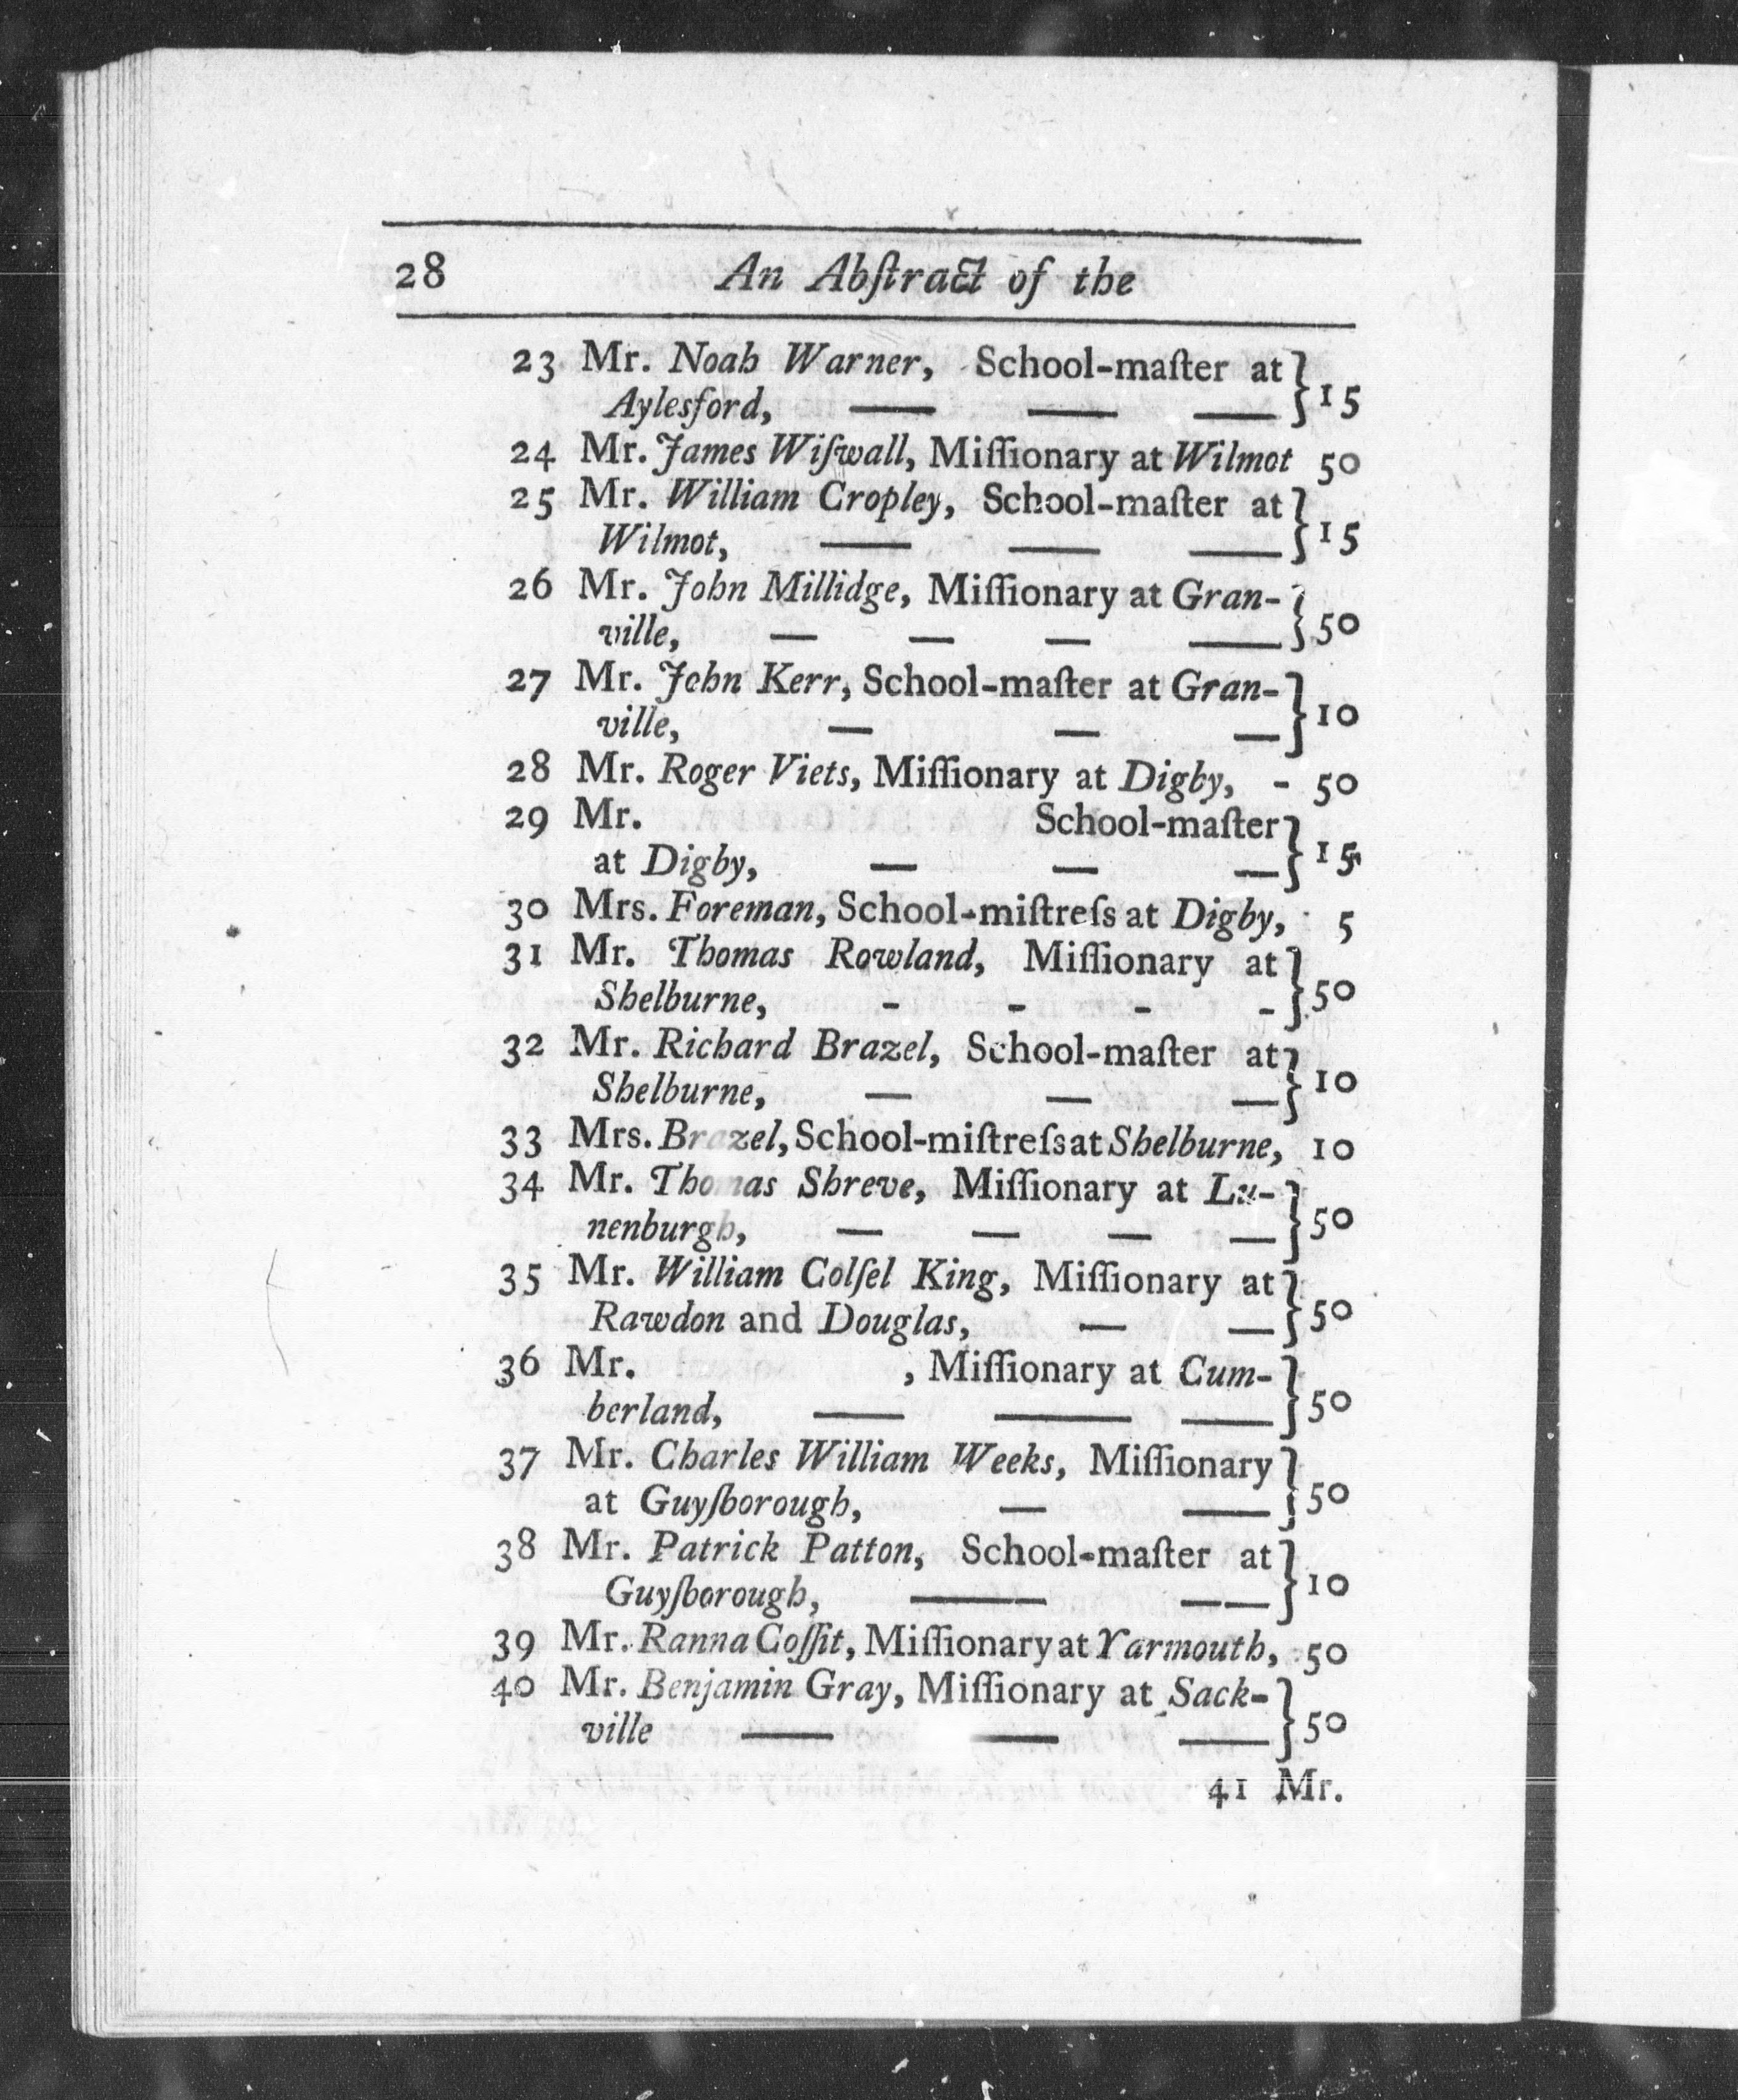 28 An Abſtract of the
23 Mr. Noah Warner, School-maſter at
Aylesford, — — — } 15
24 Mr. James Wiſwall, Miſſionary at Wilmot 50
25 Mr. William Cropley, School-maſter at
Wilmot, — — — } 15
26 Mr. John Millidge, Miſſionary at Gran-
ville, — — — — } 50
27 Mr. John Kerr, School-maſter at Gran-
ville, — — — } 10
28 Mr. Roger Viets, Miſſionary at Digby, - 50
29 Mr. School-maſter
at Digby, — — — } 15
30 Mrs. Foreman, School-miſtreſs at Digby, 5
31 Mr. Thomas Rowland, Miſſionary at
Shelburne, - - - - } 50
32 Mr. Richard Brazel, School-maſter at
Shelburne, — — — } 10
33 Mrs. Brazel, School-miſtreſs at Shelburne, 10
34 Mr. Thomas Shreve, Miſſionary at Lu-
nenburgh, — — — — } 50
35 Mr. William Colſel King, Miſſionary at
Rawdon and Douglas, — — } 50
36 Mr. , Miſſionary at Cum-
berland, — — — } 50
37 Mr. Charles William Weeks, Miſſionary
at Guyſborough, — — } 50
38 Mr. Patrick Patton, School-maſter at
Guyſborough, — — — } 10
39 Mr. Ranna Coſſit, Miſſionary at Yarmouth, 50
40 Mr. Benjamin Gray, Miſſionary at Sack-
ville — — — } 50
41 Mr.